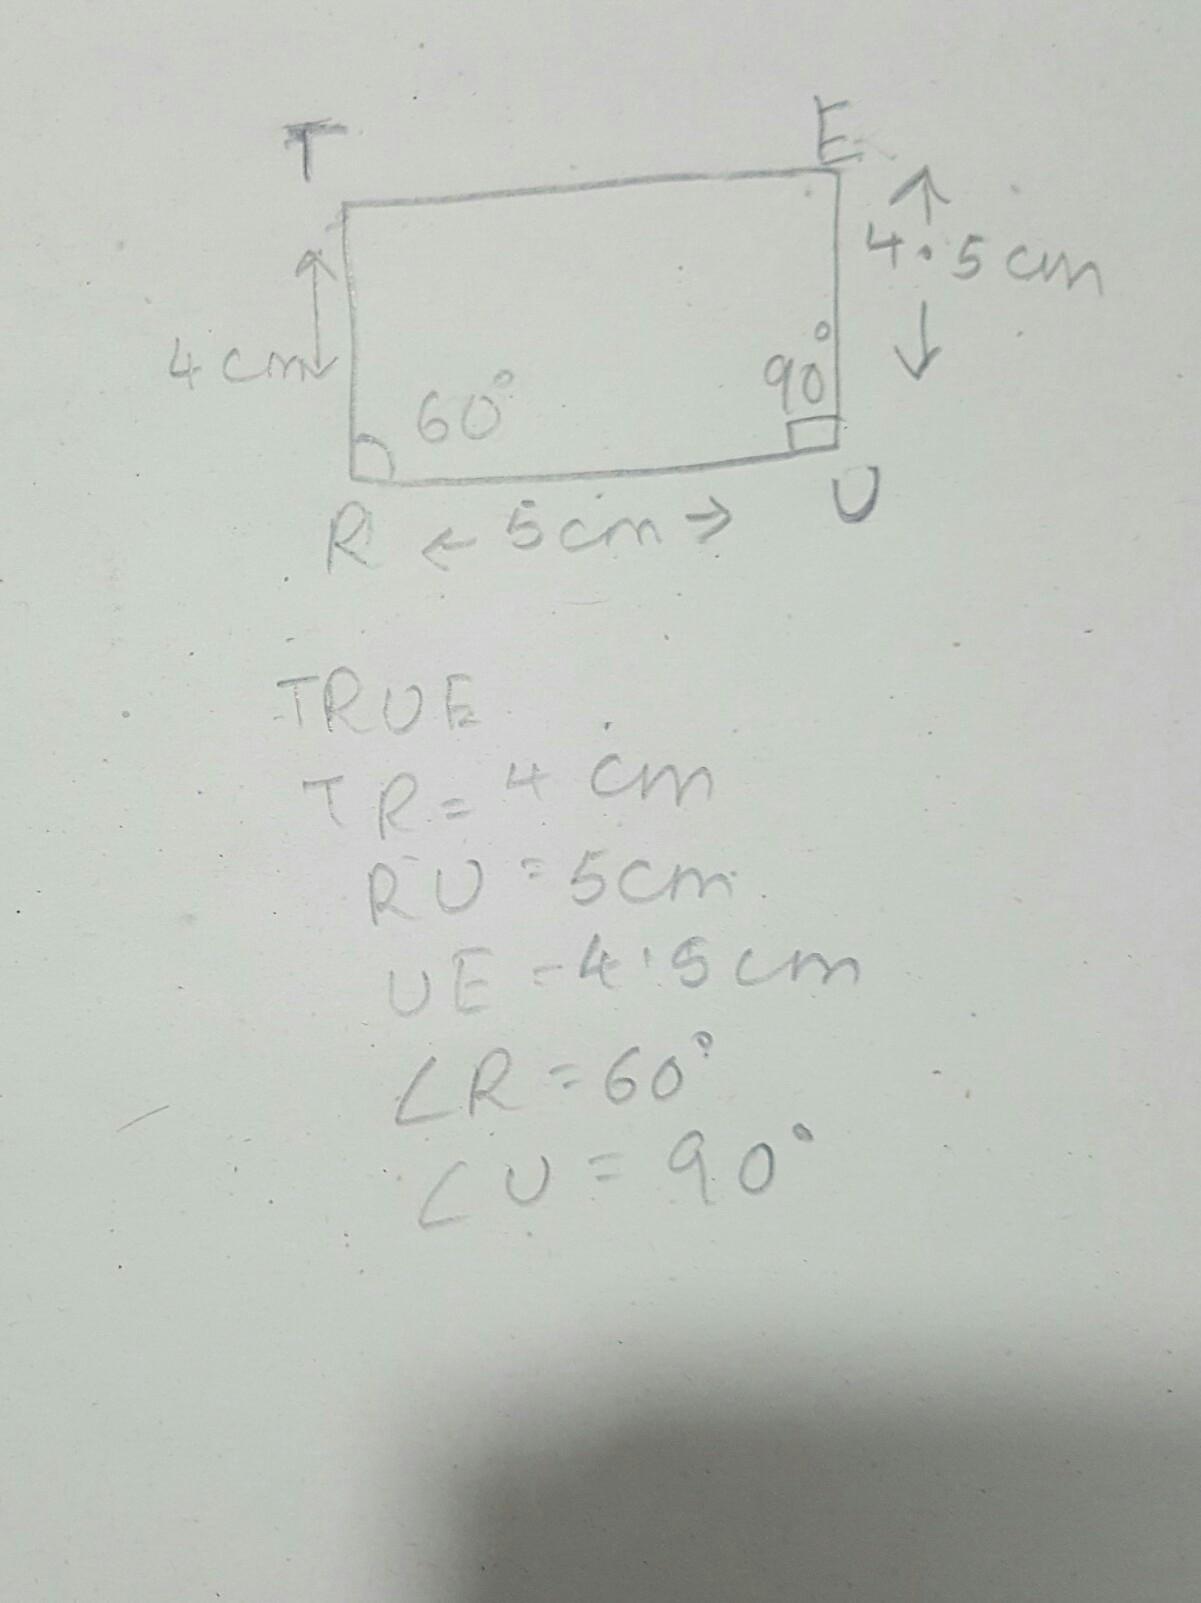 T E
4 cm 4.5 cm
60° 90°
R ← 5cm → U
TRUE
TR = 4 cm
RU = 5cm
UE = 4.5 cm
∠R = 60°
∠U = 90°